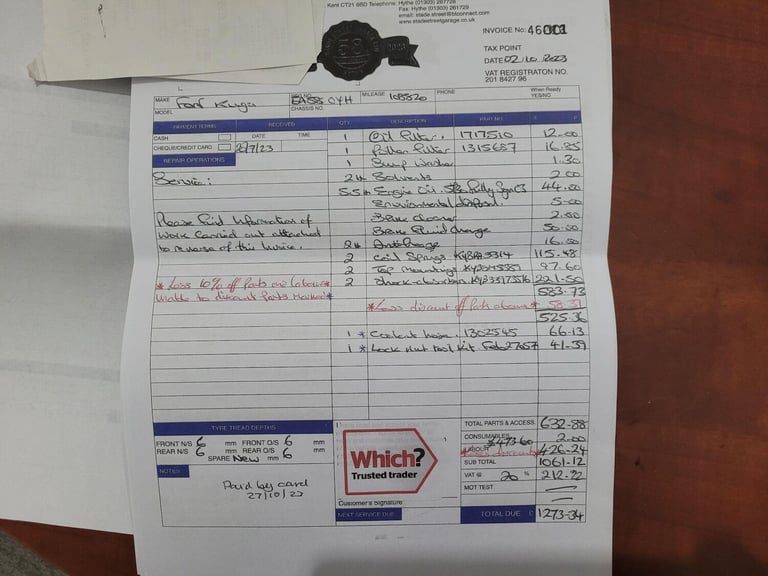 Kent CT21 6BD Telephone: Hythe (01303) 267726
Fax: Hythe (01303) 261729
email: stade.street@btconnect.com
www.stadestreetgarage.co.uk
58
2023
INVOICE No: 46001
TAX POINT
DATE 02.10.2023
VAT REGISTRATON NO.
201 8427 96
MAKE Ford Kuga
MODEL
REG NO.
CHASSIS NO.
MILEAGE 108820
PHONE
When Ready
YES/NO
PAYMENT TERMS RECEIVED QTY. DESCRIPTION PART NO. £ P
CASH DATE TIME
CHEQUE/CREDIT CARD 2/7/23
REPAIR OPERATIONS
1 Oil Filter. 1717510 12.00
1 Pollen Filter 1315687 16.85
1 Sump Washer 1.30
Service: Solvents 2.00
Engine Oil 44.00
Environmental disposal. 5.00
Please find Information of Brake cleaner 2.50
Work carried out attached Brake Fluid change 50.00
to reverse of this Invoice. Antifreeze 16.00
2 Coil Springs 115.48
2 Top Mountings 97.60
*Less 10% off Parts and labour* 2 Shock absorbers 221.50
Unable to discount Parts Marked* 583.73
*Less discount off Parts above* 58.37
525.36
1 * Coolant hose. 1302545 66.13
1 * Lock nut tool kit 41.39
TYRE TREAD DEPTHS
FRONT N/S 6 mm FRONT O/S 6 mm
REAR N/S 6 mm REAR O/S 6 mm
SPARE New mm
NOTES
Paid by card
27/10/23
Which?
Trusted trader
Customer's Signature
NEXT SERVICE DUE
TOTAL PARTS & ACCESS. 632-88
CONSUMABLES 2.00
LABOUR £473.60
*Less discount* 426-24
SUB TOTAL 1061-12
VAT @ 20 % 212-22
MOT TEST
TOTAL DUE £ 1273-34